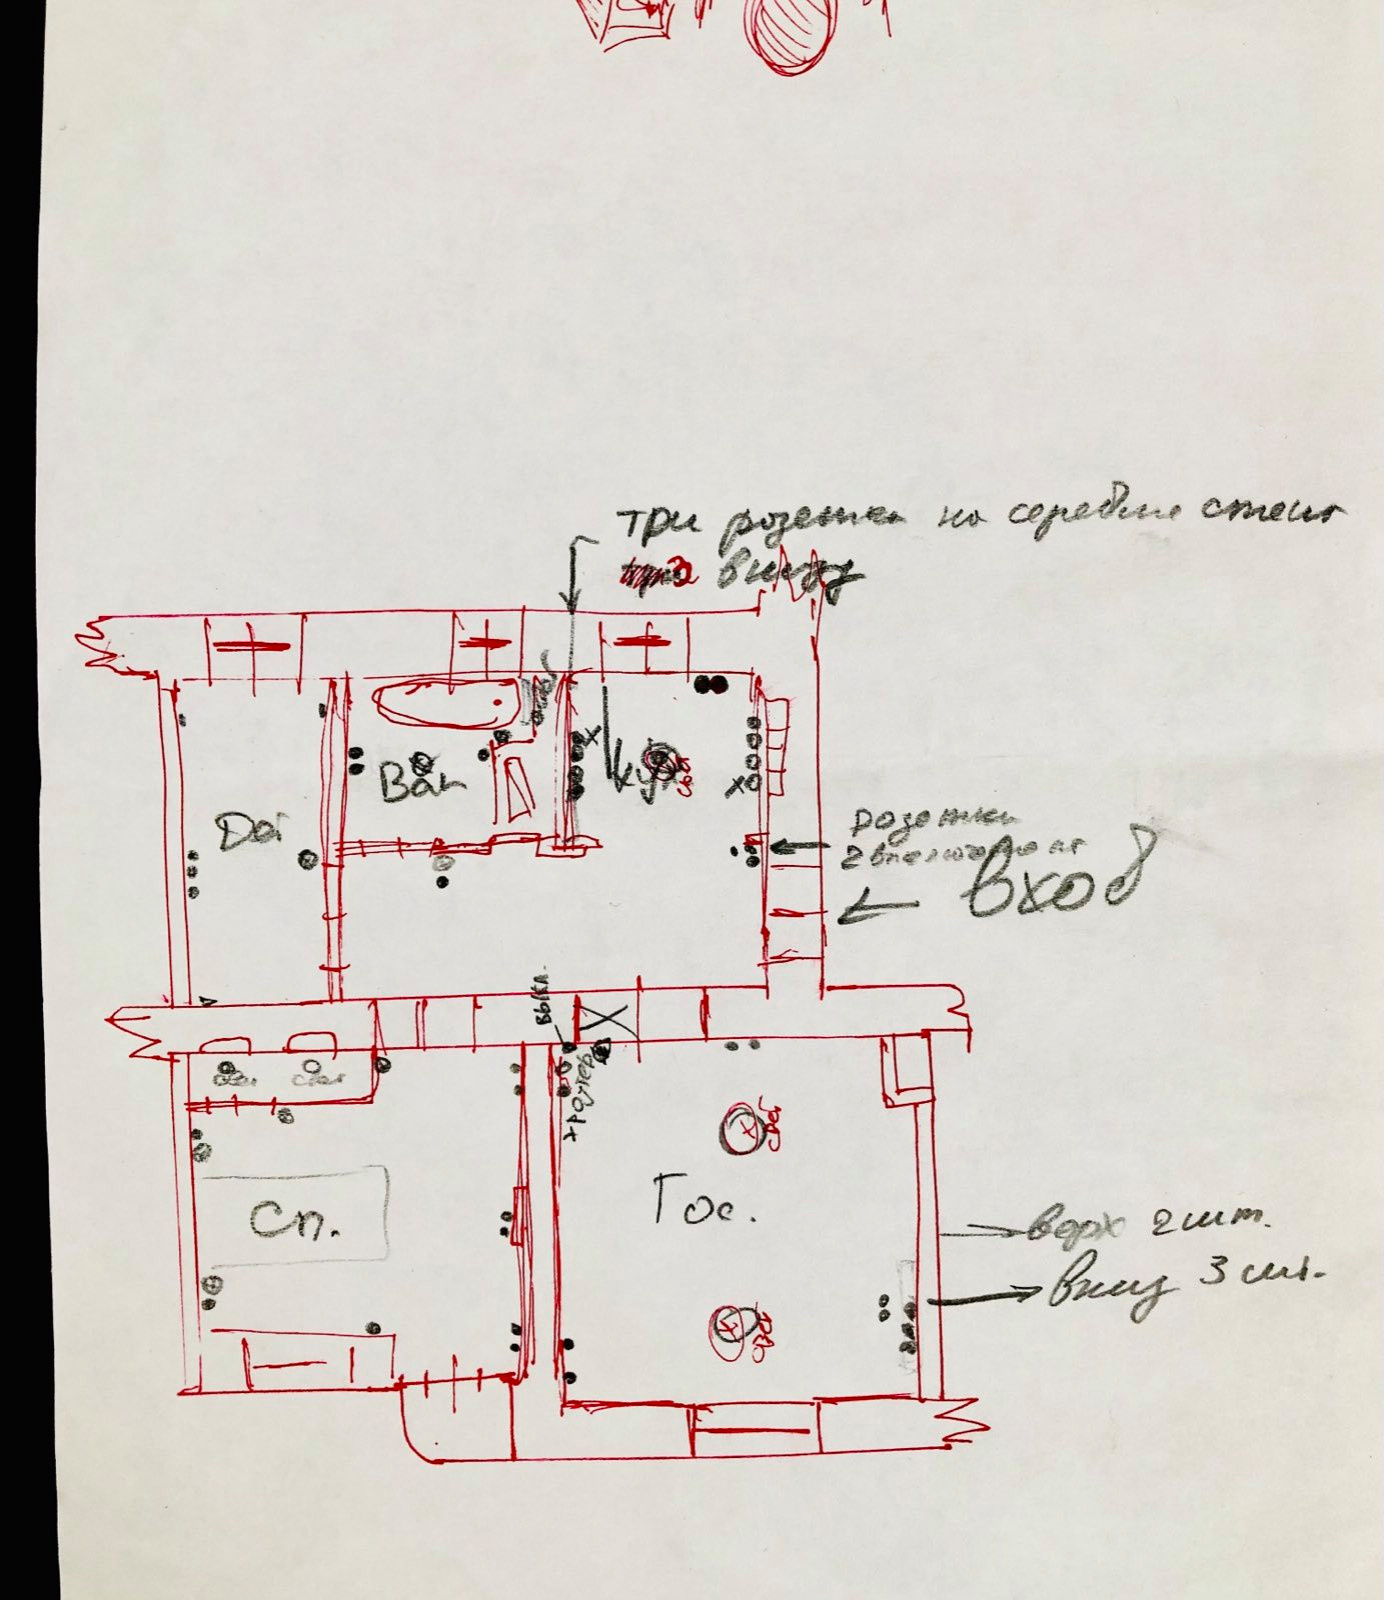 три розетки на середине стены
внизу
Ван
Кух
Дет
розетки
2 выключателя
Вход
выкл.
+роутер
свет
Сп.
Гос.
верх 2 шт.
вниз 3 шт.